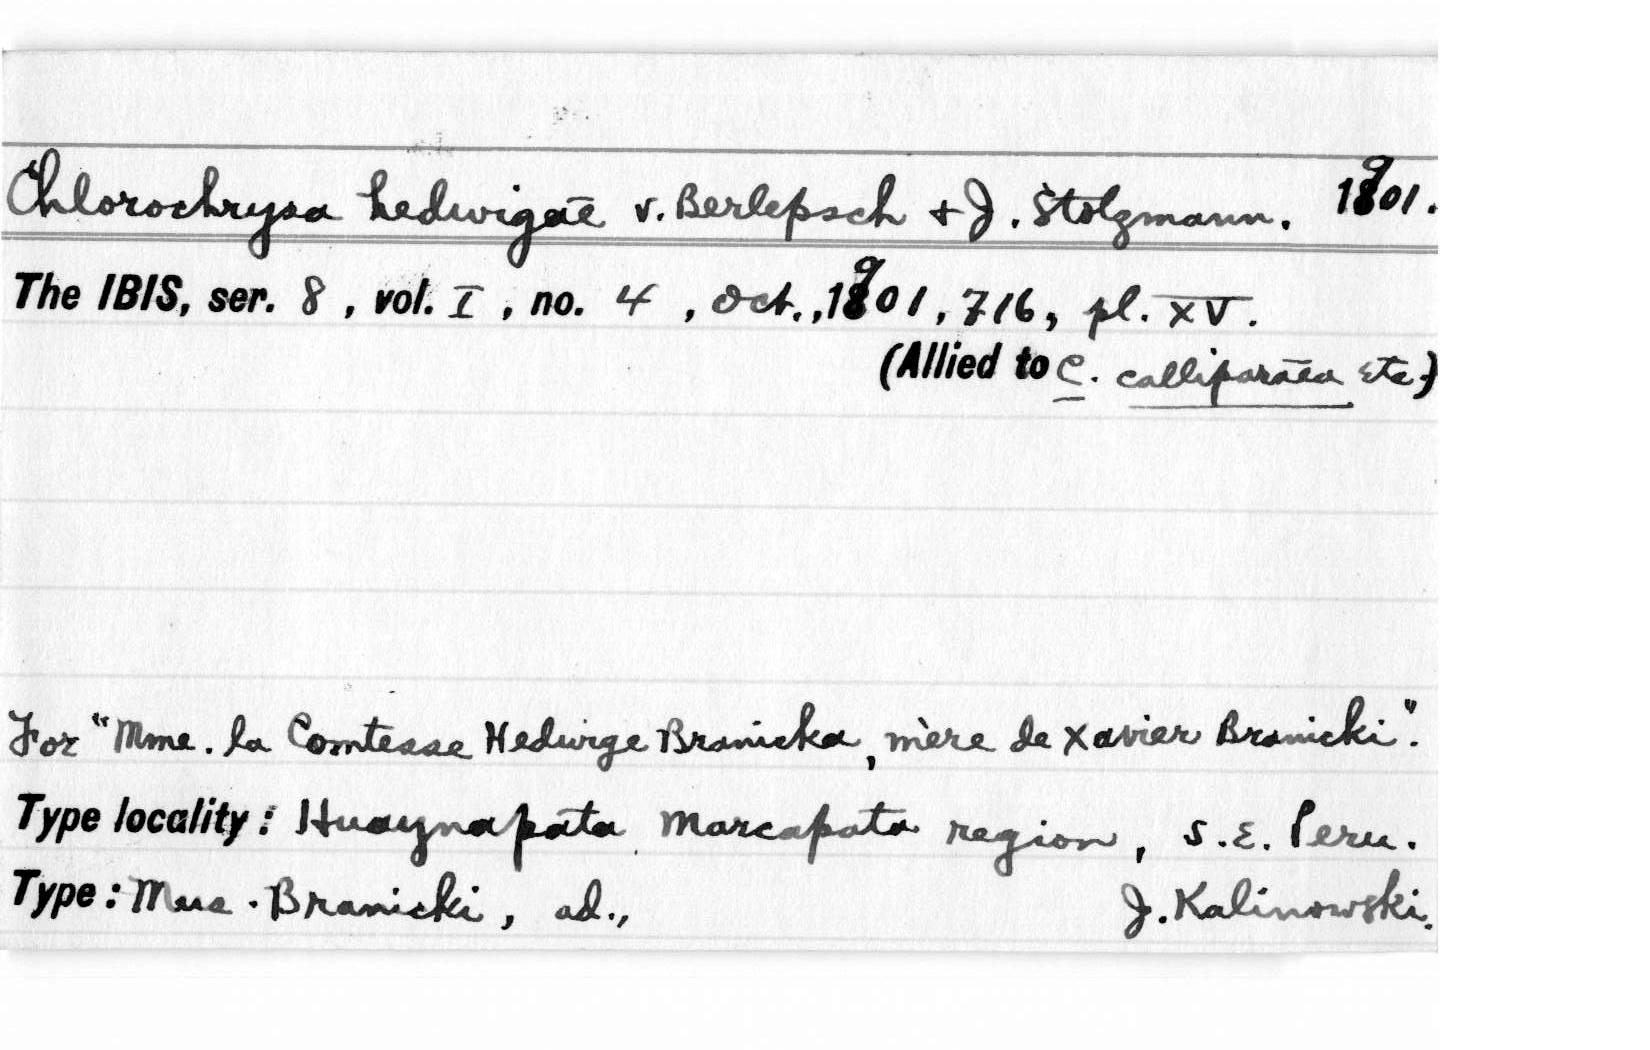 Chlorochrysa hedwigae v. Berlepsch + J. Stolzmann. 1901.
The IBIS, ser. 8, vol. I, no. 4, Oct., 1901, 716, pl. XV.
(Allied to C. calliparaea etc.)
For "Mme. la Comtesse Hedwige Branicka, mère de Xavier Branicki".
Type locality: Huaynapata Marcapata region, S.E. Peru.
Type: Mus. Branicki, ad., J. Kalinowski.